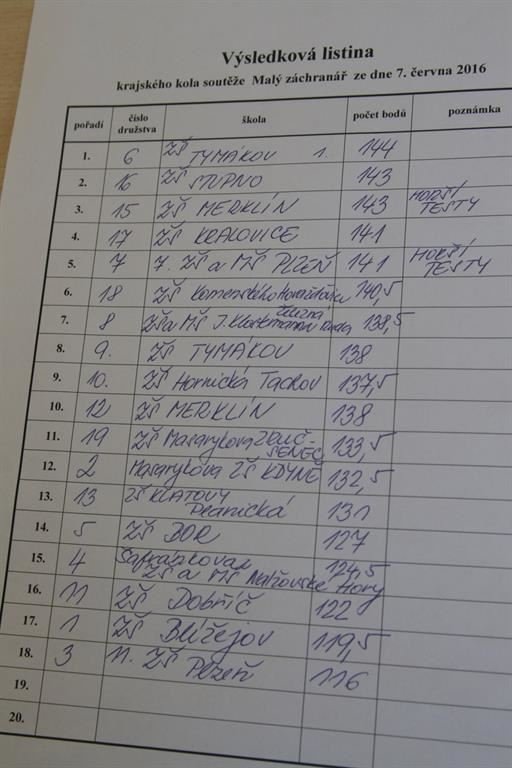 Výsledková listina
krajského kola soutěže Malý záchranář ze dne 7. června 2016
pořadí číslo družstva škola počet bodů poznámka
1. 6 ZŠ TYMÁKOV 1. 144
2. 16 ZŠ STUPNO 143
3. 15 ZŠ MERKLÍN 143 HORŠÍ TESTY
4. 17 ZŠ KRALOVICE 141
5. 7 7. ZŠ a MŠ PLZEŇ 141 HORŠÍ TESTY
6. 18 ZŠ Komenského 140,5
7. 8 ZŠ a MŠ J. Klostermanna Železná Ruda 138,5
8. 9. ZŠ TYMÁKOV 138
9. 10. ZŠ Hornická Tachov 137,5
10. 12 ZŠ MERKLÍN 138
11. 19 ZŠ Masarykova ZRUČ-SENEC 133,5
12. 2 Masarykova ZŠ KDYNĚ 132,5
13. 13 ZŠ KLATOVY Plánická 131
14. 5 ZŠ BOR 127
15. 4 ZŠ a MŠ Nalžovské Hory 124,5
16. 11 ZŠ Dobříč 122
17. 1 ZŠ Blížejov 119,5
18. 3 11. ZŠ Plzeň 116
19.
20.